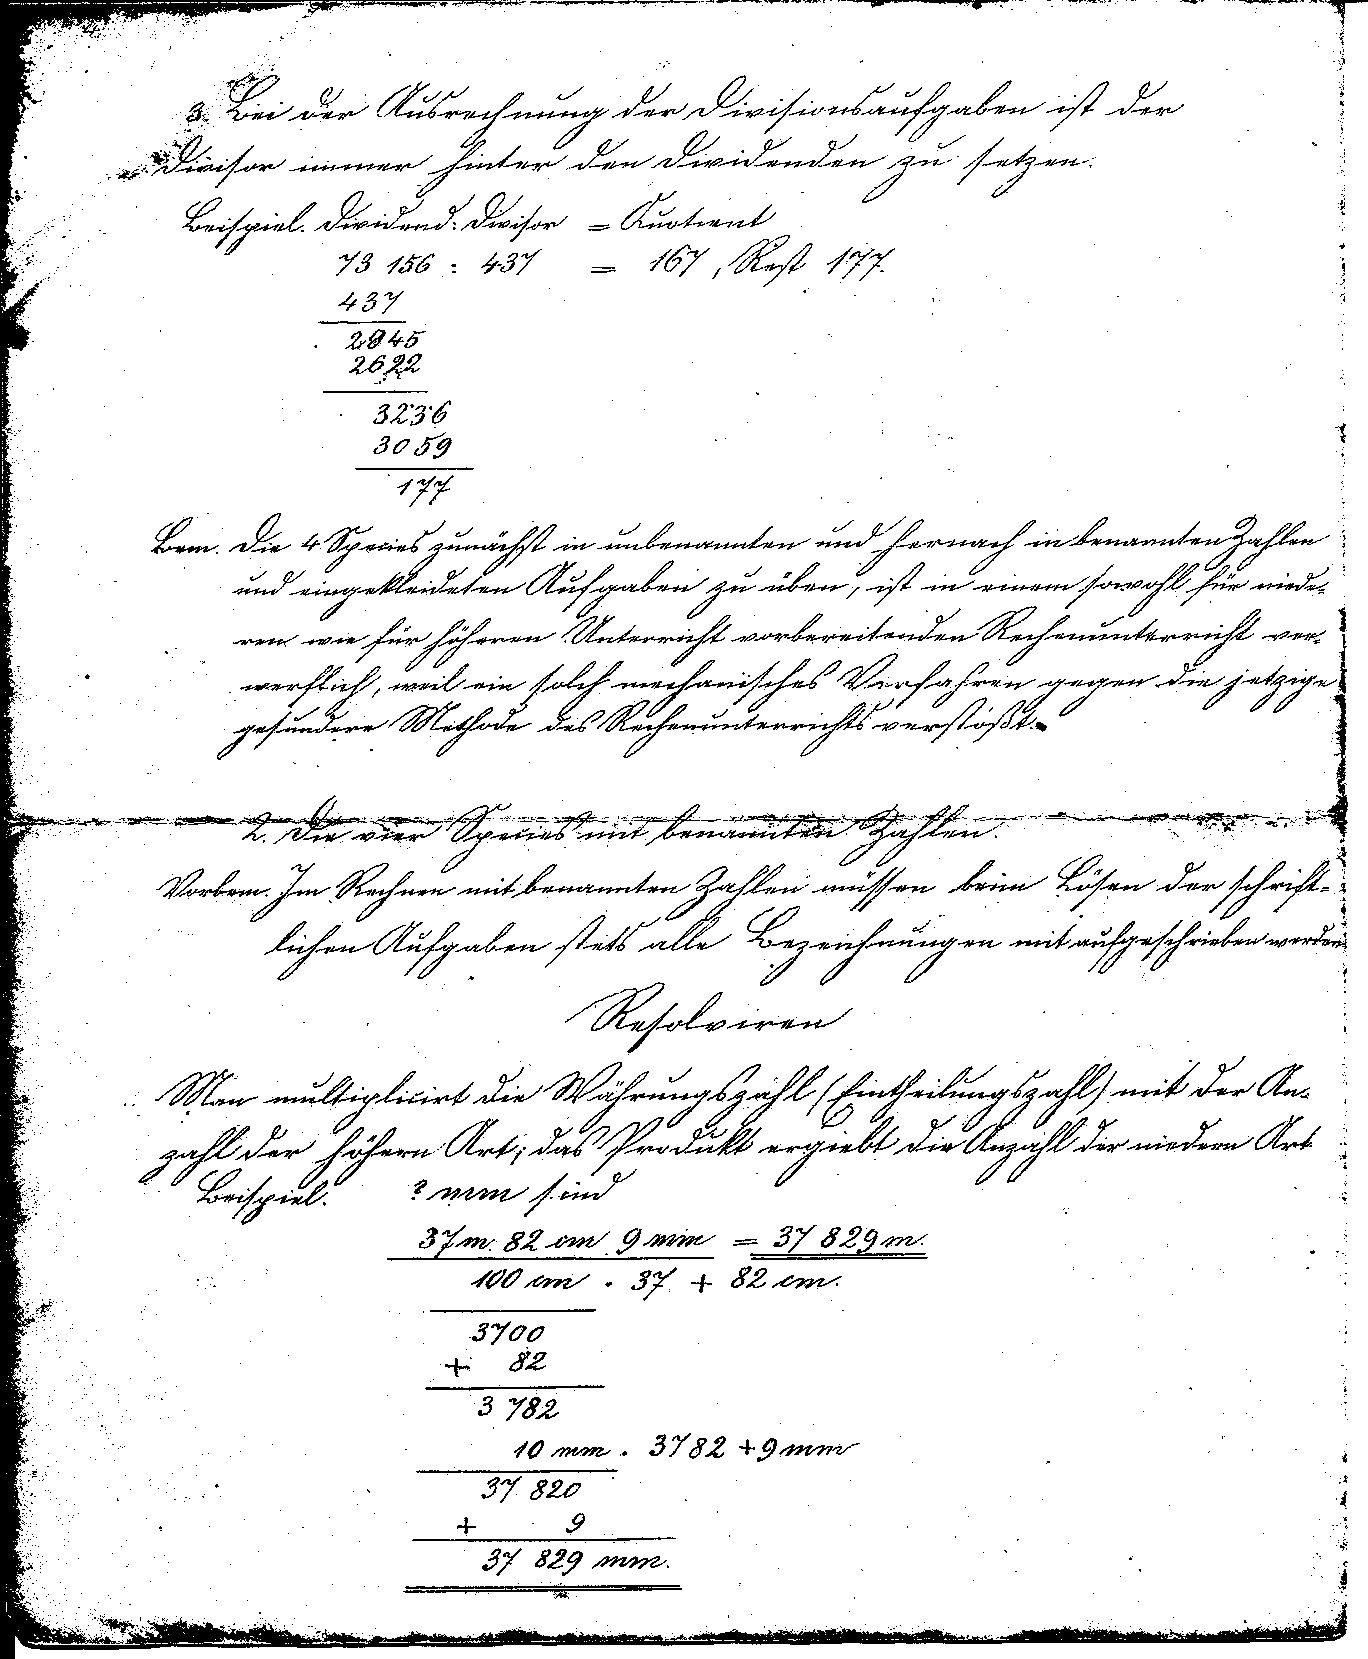 3. Bei der Ausrechnung der Divisionsaufgaben ist der
Divisor immer hinter den Dividenden zu setzen.
Beispiel. Dividend : Divisor = Quotient
73 156 : 437 = 167, Rest 177.
437
2845
2622
3236
3059
177
Bem. Die 4 Species zunächst in unbenannten und hernach in benannten Zahlen
und eingekleideten Aufgaben zu üben, ist in einem sowohl für niede-
ren wie für höheren Unterricht vorbereitenden Rechenunterricht ver-
werflich, weil ein solch mechanisches Verfahren gegen die jetzige
gesundere Methode des Rechenunterrichts verstößt.
2. Die vier Species mit benannten Zahlen.
Vorbem. Im Rechnen mit benannten Zahlen müssen beim Lösen der schrift-
lichen Aufgaben stets alle Bezeichnungen mit aufgeschrieben werden
Resolviren
Man multiplicirt die Währungszahl (Eintheilungszahl) mit der An-
zahl der höhern Art; das Produkt ergiebt die Anzahl der niedern Art
Beispiel. ? mm sind
37 m. 82 cm 9 mm = 37 829 m.
100 cm . 37 + 82 cm.
3700
+ 82
3 782
10 mm . 3782 + 9 mm
37 820
+ 9
37 829 mm.